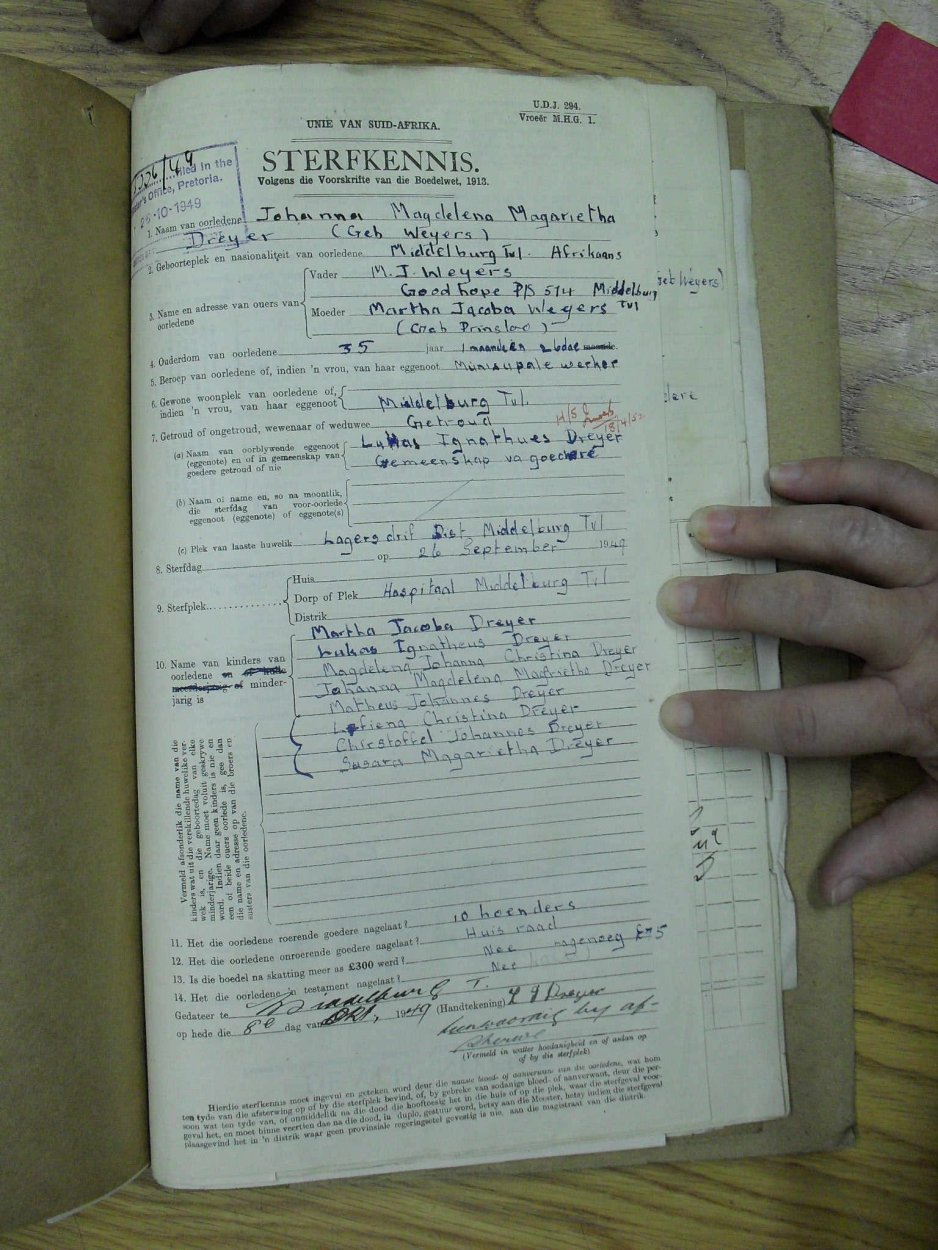 U.D.J. 294.
Vroeër M.H.G. 1.
UNIE VAN SUID-AFRIKA.
STERFKENNIS.
Volgens die Voorskrifte van die Boedelwet, 1913.
/49
filed in the
Office, Pretoria.
-10-1949
1. Naam van oorledene Johanna Magdelena Magarietha
Dreyer (Geb Weyers)
2. Geboorteplek en nasionaliteit van oorledene Middelburg Tvl. Afrikaans
3. Name en adresse van ouers van oorledene
Vader M. J. Weyers
Goodhope P/B 514 Middelburg Tvl
Moeder Martha Jacoba Weyers
(Geb Prinsloo)
Geb Weyers)
4. Ouderdom van oorledene 35 jaar 1 maand en 26 dae maande.
5. Beroep van oorledene of, indien 'n vrou, van haar eggenoot Munisupale werker
6. Gewone woonplek van oorledene of, indien 'n vrou, van haar eggenoot Middelburg Tvl.
7. Getroud of ongetroud, wewenaar of weduwee Getroud
18/4/52
(a) Naam van oorblywende eggenoot (eggenote) en of in gemeenskap van goedere getroud of nie
Lukas Ignathues Dreyer
Gemeenskap va goedere
(b) Naam of name en, so na moontlik, die sterfdag van voor-oorlede eggenoot (eggenote) of eggenote(s)
(c) Plek van laaste huwelik Lagersdrif Dist Middelburg Tvl
8. Sterfdag op 26 September 1949
9. Sterfplek
Huis
Dorp of Plek Hospitaal Middelburg Tvl
Distrik
10. Name van kinders van oorledene en of hulle meerderjarig of minderjarig is
Martha Jacoba Dreyer
Lukas Ignatheus Dreyer
Magdelena Johanna Christina Dreyer
Johanna Magdelena Magrietha Dreyer
Matheus Johannes Dreyer
Christina Dreyer
Chirstoffel Johannes Dreyer
Susara Magarietha Dreyer
Vermeld afsonderlik die name van die kinders wat uit die verskillende huwelike verwek is, en die geboortedag van elke minderjarige. Name moet voluit geskrywe word. Indien daar geen kinders is nie en een of beide ouers oorlede is, gee dan die name en adresse op van die broers en susters van die oorledene.
11. Het die oorledene roerende goedere nagelaat? 10 hoenders
12. Het die oorledene onroerende goedere nagelaat? Huis raad
13. Is die boedel na skatting meer as £300 werd? Nee £75
14. Het die oorledene 'n testament nagelaat? Nee
Gedateer te Middelburg T.
op hede die 8e dag van Okt, 1949 (Handtekening) L J Dreyer
teenwoordig by af-
sterwe
(Vermeld in watter hoedanigheid en of aldan op of by die sterfplek)
Hierdie sterfkennis moet ingevul en geteken word deur die naaste bloed- of aanverwant van die oorledene, wat hom
ten tyde van die afsterwing op of by die sterfplek bevind, of, by gebreke van sodanige bloed- of aanverwant, deur die per-
soon wat ten tyde van, of onmiddellik na die dood die hooftoesig het in die huis of op die plek, waar die sterfgeval voor-
geval het, en moet binne veertien dae na die dood, in duplo, gestuur word, hetsy aan die Meester, hetsy indien die sterfgeval
plaasgevind het in 'n distrik waar geen provinsiale regeringsetel gevestig is nie, aan die magistraat van die distrik.